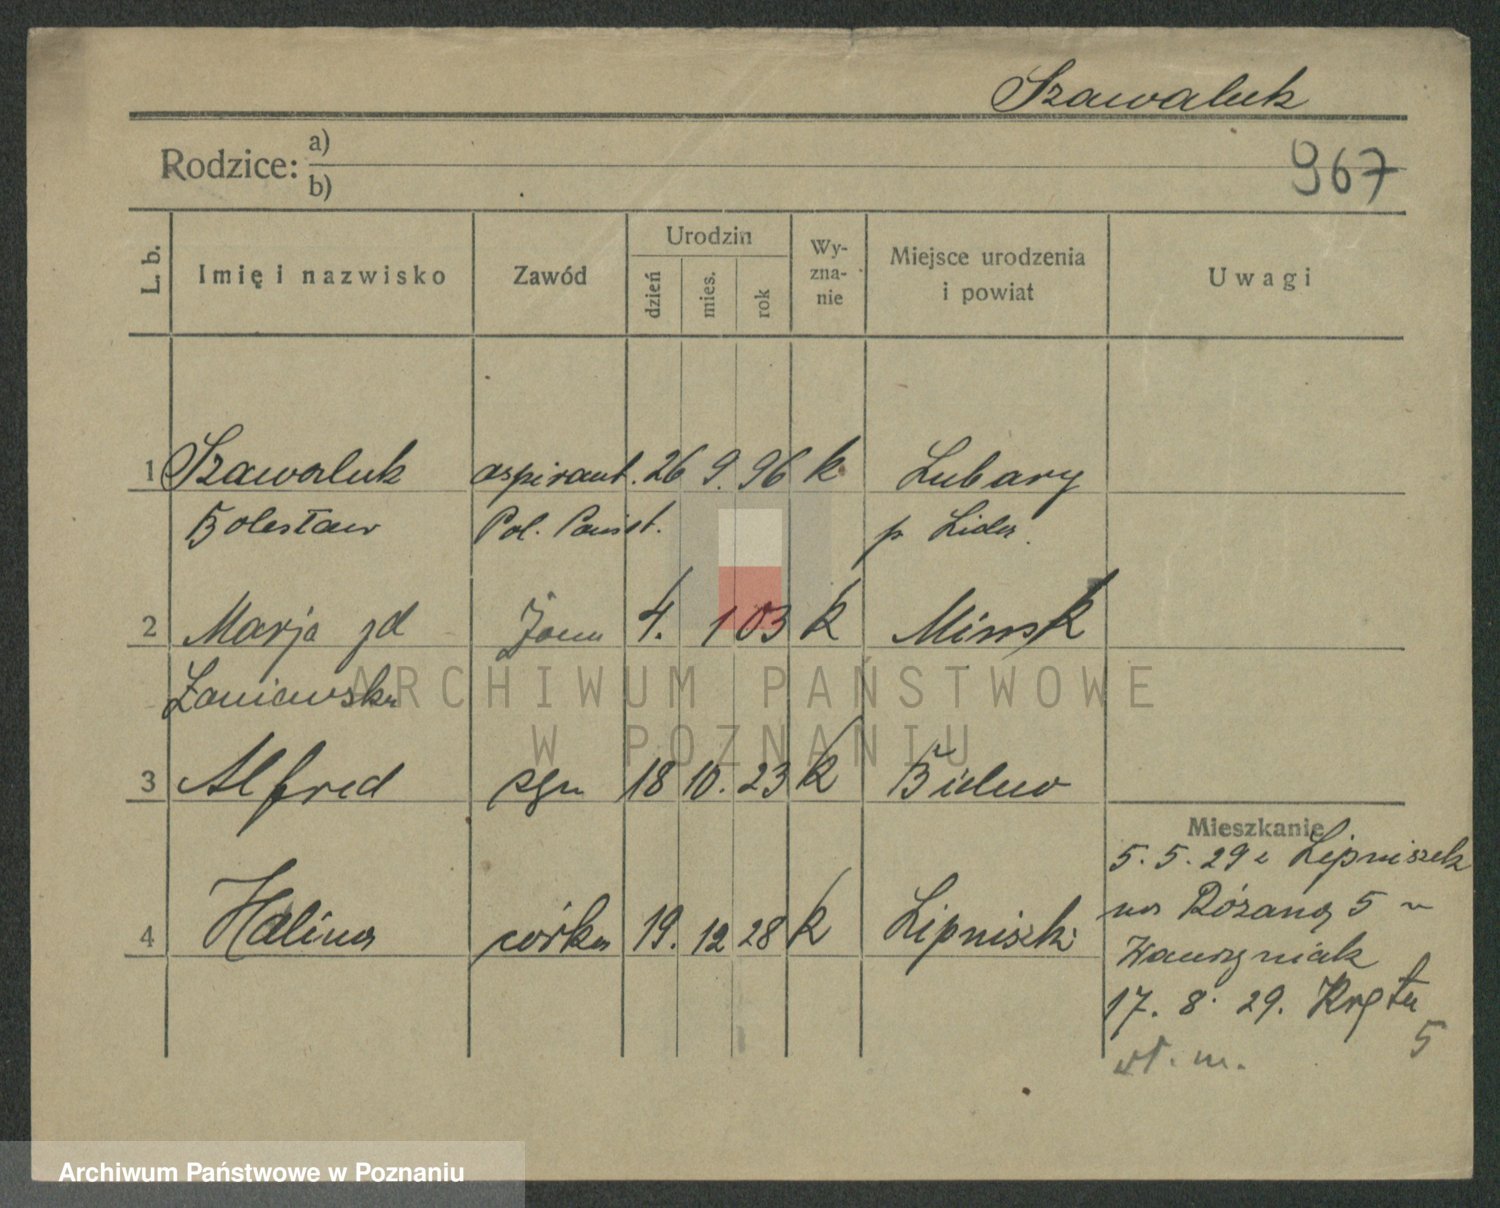 Szawaluk
Rodzice: a)
b)
967
L. b.
Imię i nazwisko
Zawód
Urodzin
dzień
mies.
rok
Wy-
zna-
nie
Miejsce urodzenia
i powiat
Uwagi
1 Szawaluk aspirant. 26 9. 96 k Lubary
Bolesław Pol. Państ. p Lida
2 Marja zd żona 4. 1 03 k Minsk
Zaniewska
3 Alfred syn 18 10. 23 k
4 Halina córka 19. 12 28 k Lipniszki
Mieszkanie
5. 5. 29 z Lipniszek
na Różaną 5 u
Wawrzyniak
17. 8. 29. Kręta
5
wł. m.
ARCHIWUM PAŃSTWOWE
W POZNANIU
Archiwum Państwowe w Poznaniu